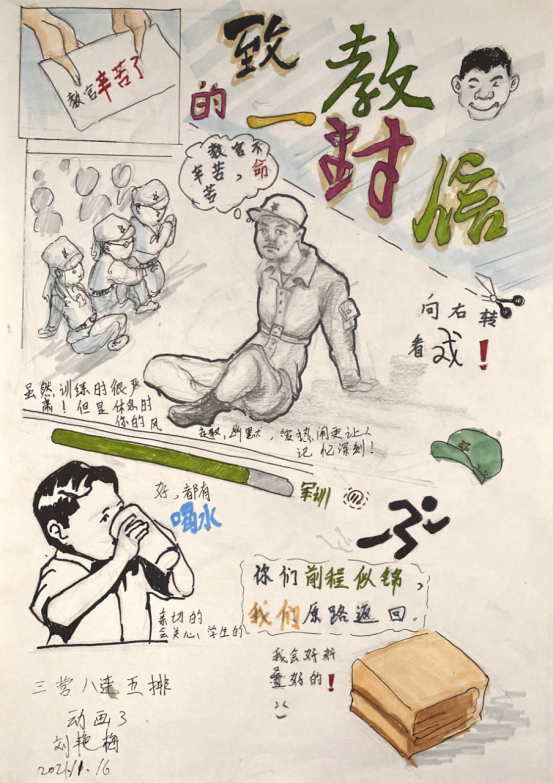 教官辛苦了
致教
的一封信
教官不
辛苦,命
苦
向右转
看戏!
虽然训练时很严
肃!但是休息时
你的风
趣,幽默,
更让人
记忆深刻!
好,都有
喝水
军训
亲切的
会关心学生的
你们前程似锦,
我们原路返回.
我会好好
叠好的!
三营八连五排
动画3
刘艳梅